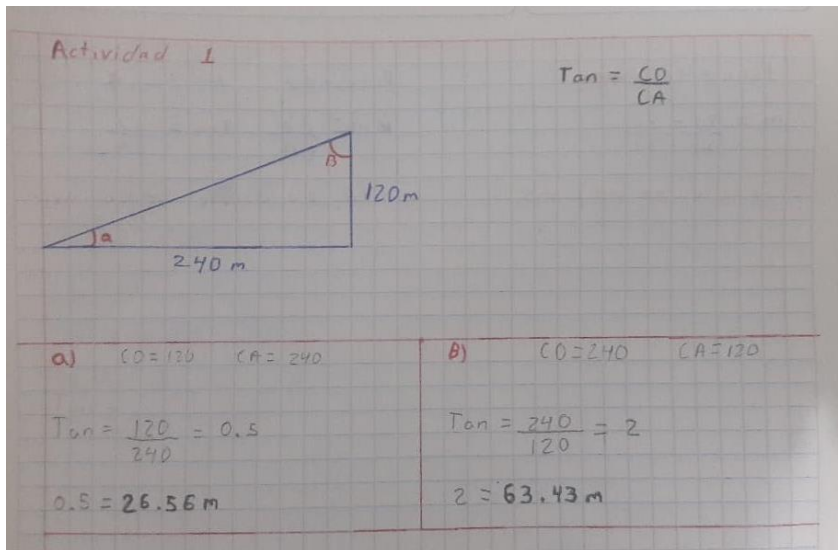 Actividad 1
Tan = CO
CA
B
120 m
a
240 m
a) CO = 120 CA = 240
Tan = 120 = 0.5
240
0.5 = 26.56 m
B) CO = 240 CA = 120
Tan = 240 = 2
120
2 = 63.43 m